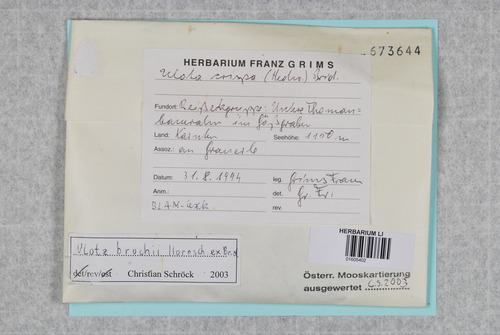 673644
HERBARIUM FRANZ GRIMS
Ulota crispa (Hedw.) Brid.
Fundort: Reißeckgruppe: Untere Thoman-
baueralm im Gößgraben
Land: Kärnten Seehöhe: 1150 m
Assoz.: an Grauerle
Datum: 31.8.1994 leg. Grims Franz
Anm.: det. Gr. Fr.
rev.
Ulota bruchii Hornsch ex Brid
det/rev/ Christian Schröck 2003
HERBARIUM LI
01605402
Österr. Mooskartierung
ausgewertet 2003